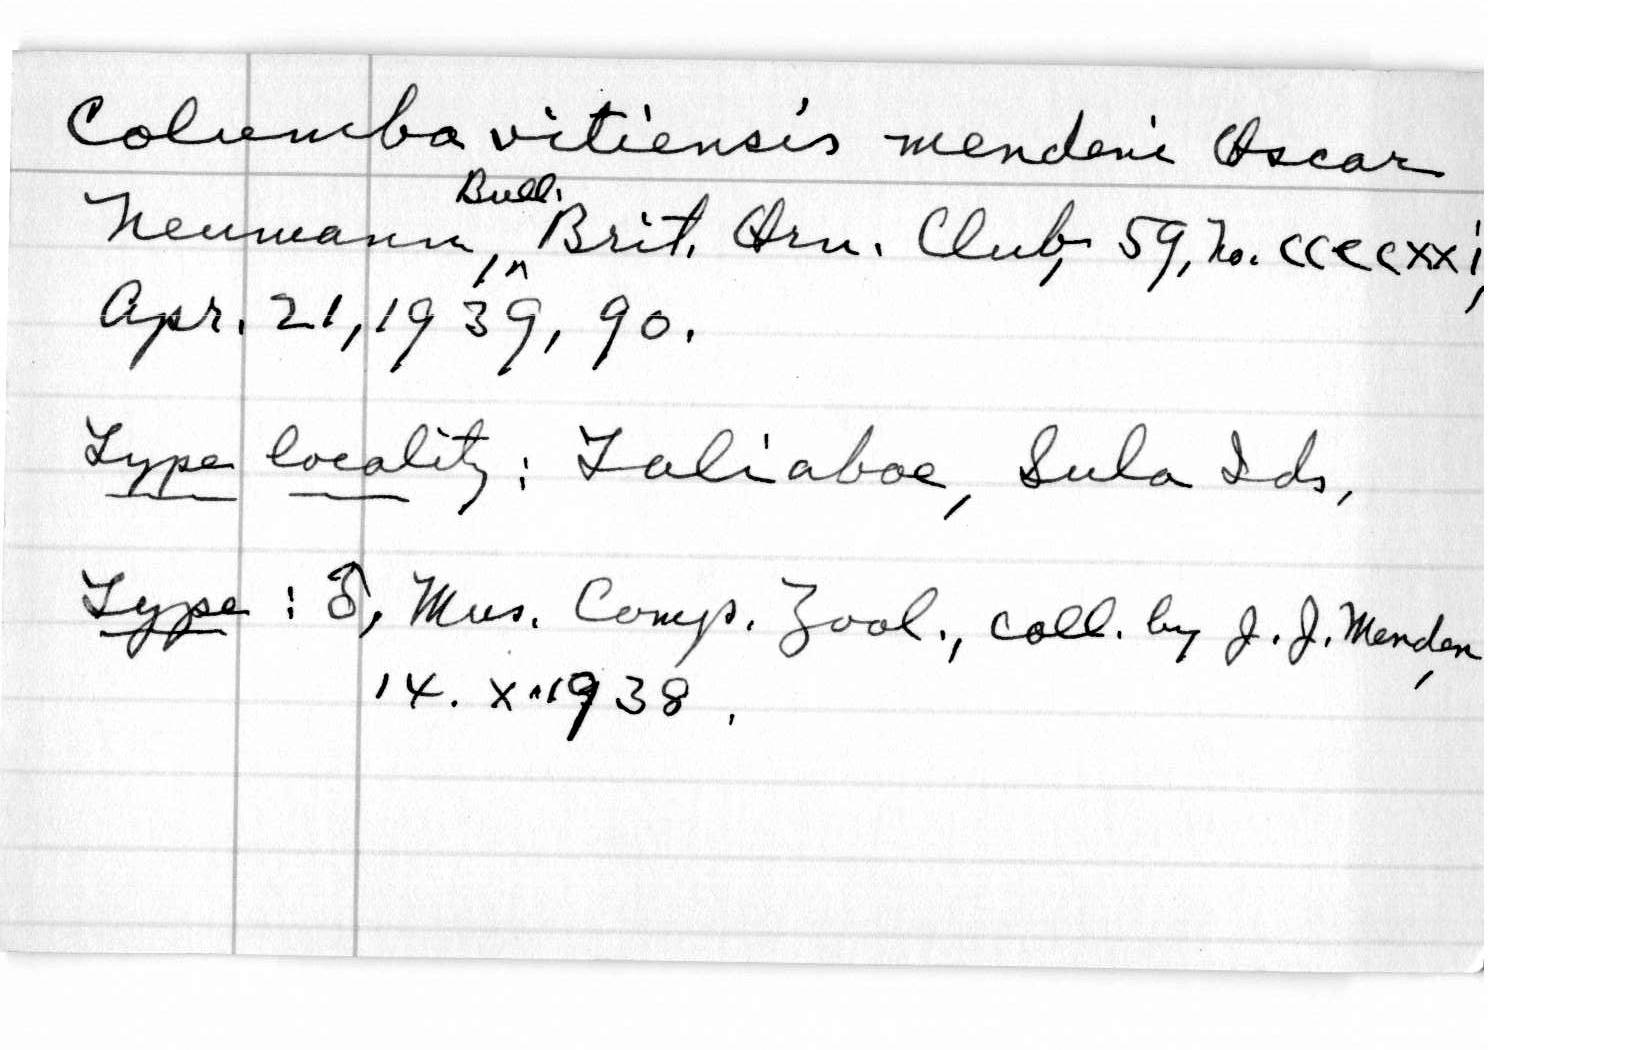 Columba vitiensis mendeni Oscar
Neumann, Bull. Brit. Orn. Club, 59, No. ccccxxi,
Apr. 21, 1939, 90.
Type locality: Taliaboe, Sula Ids,
Type: ♂, Mus. Comp. Zool., coll. by J. J. Menden,
14. X. 1938.